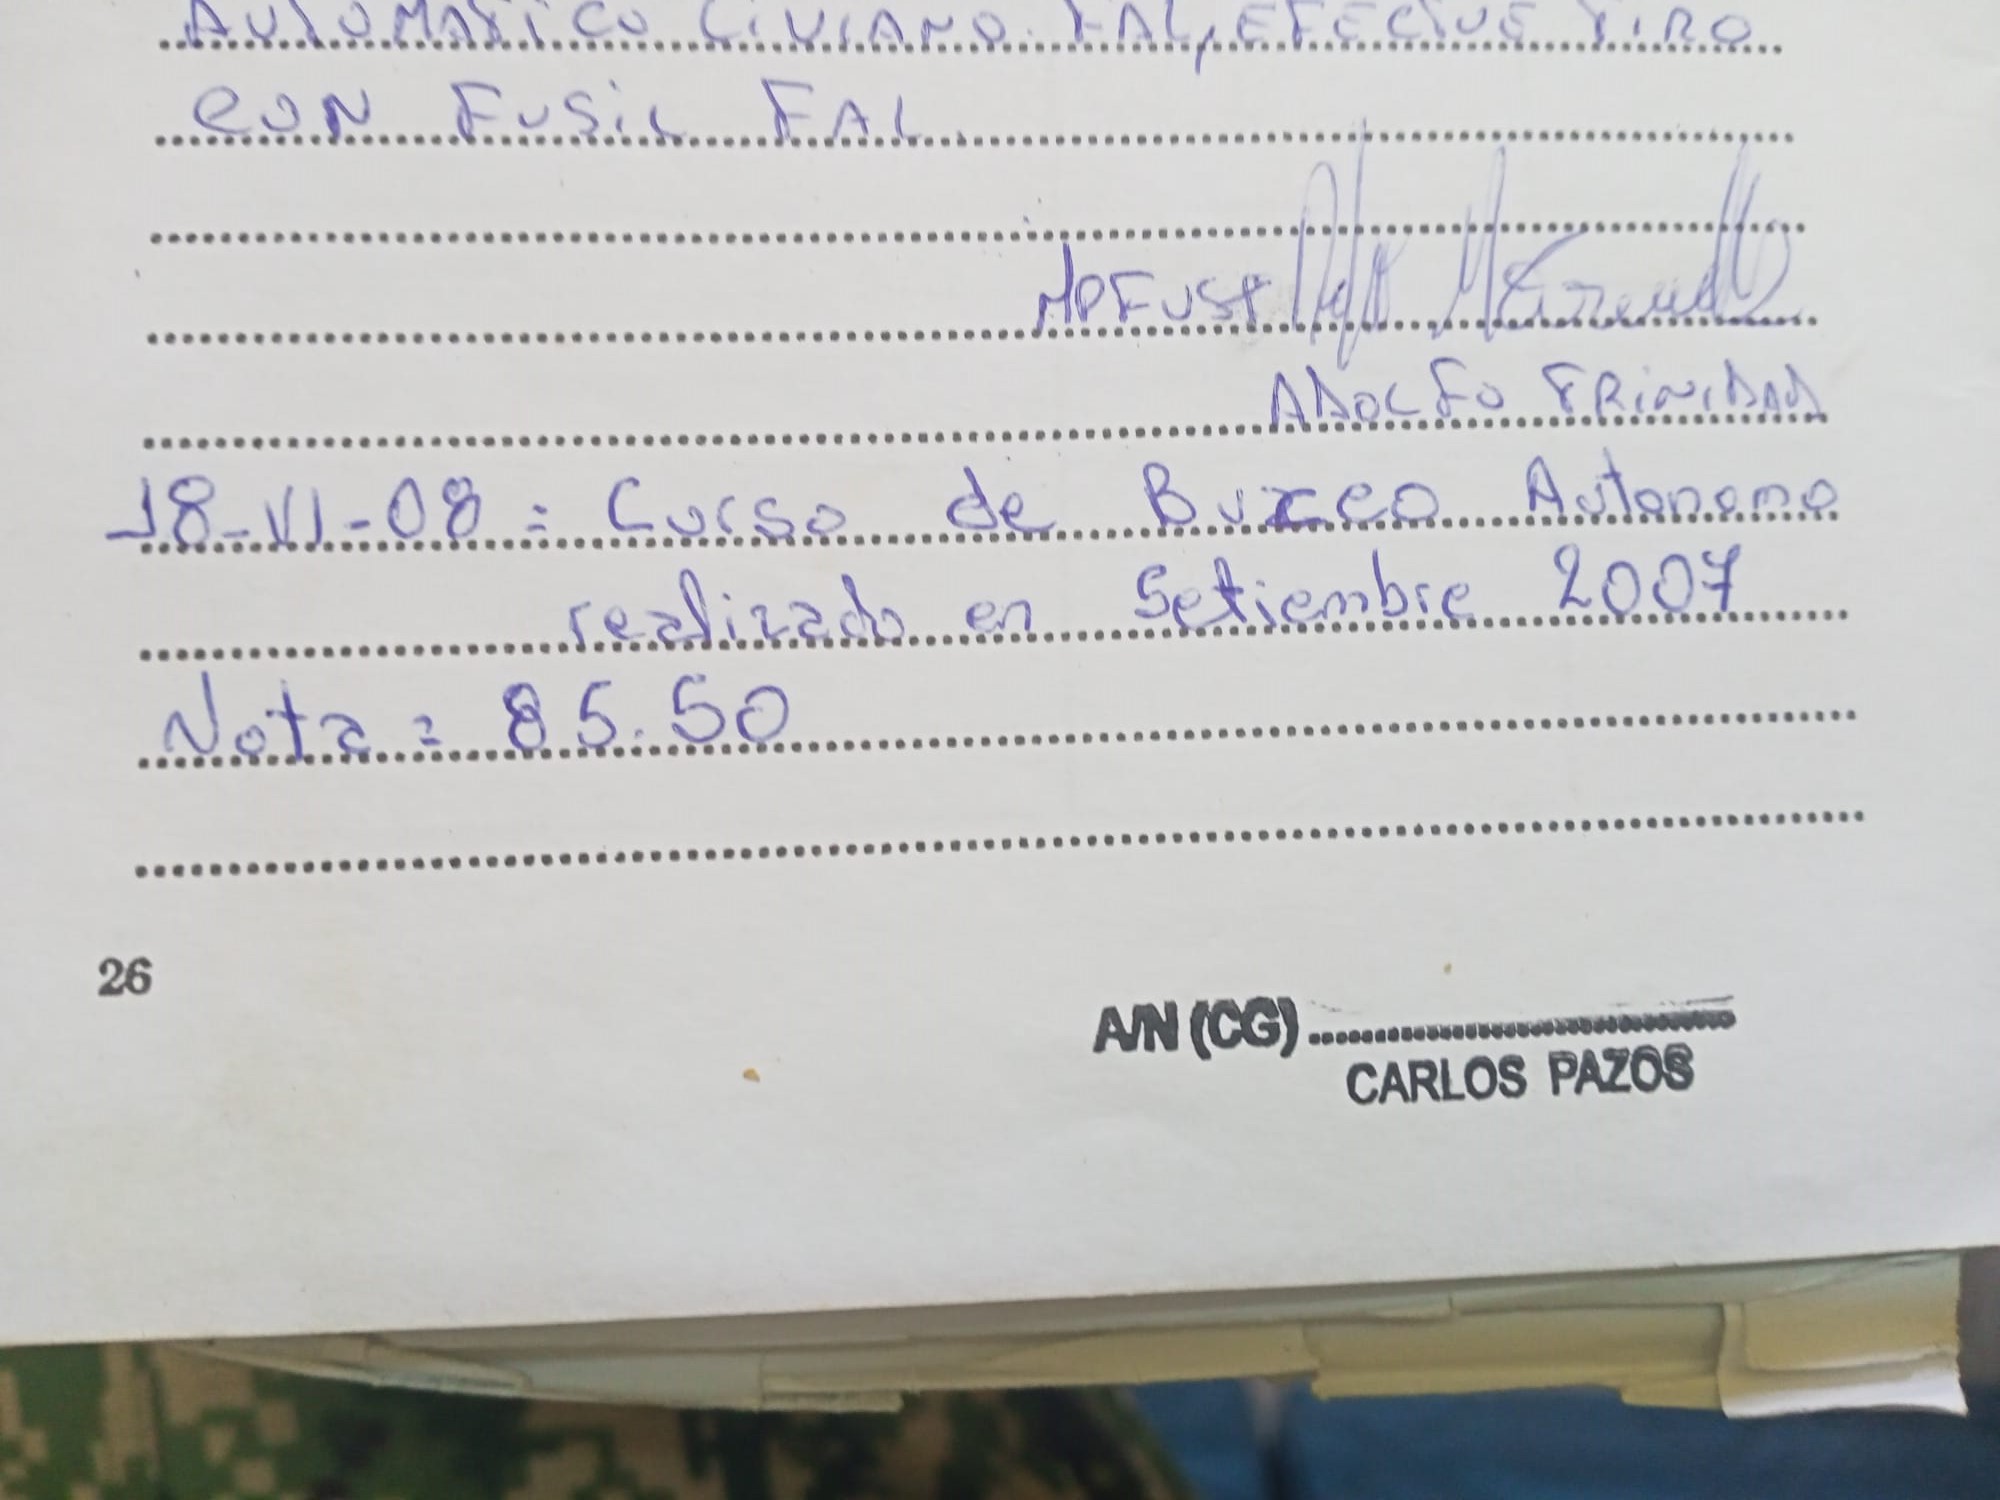 AUTOMATICO LIVIANO FAL, EFECTUE TIRO
CON FUSIL FAL.
ADOLFO TRINIDAD
18-VI-08 = Curso de Buceo Autonomo
realizado en Setiembre 2007
Nota = 85.50
26
A/N (CG)
CARLOS PAZOS